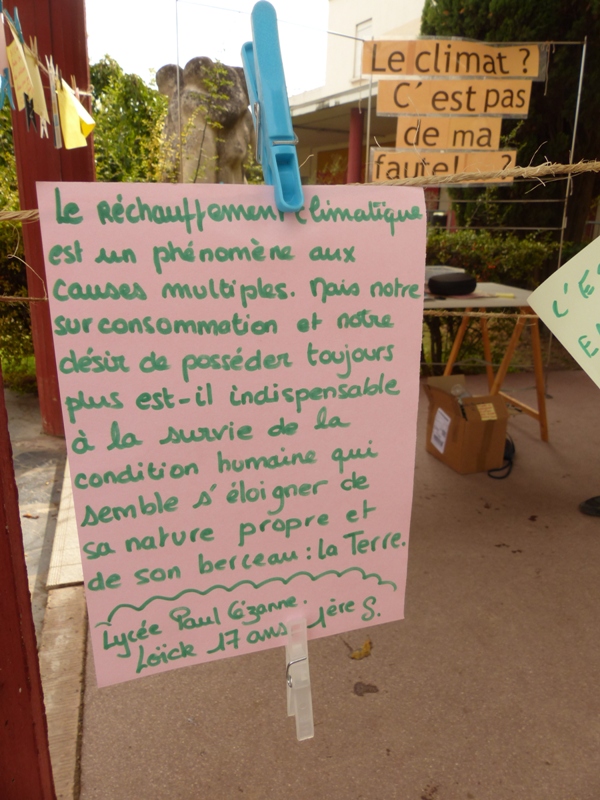 Le climat ?
C'est pas
de ma
faute! ?
Le Réchauffement climatique
est un phénomène aux
causes multiples. Mais notre
surconsommation et notre
désir de posséder toujours
plus est-il indispensable
à la survie de la
condition humaine qui
semble s'éloigner de
sa nature propre et
de son berceau : la Terre.
Lycée Paul Cézanne.
Loïck 17 ans 1ère S.
C'E